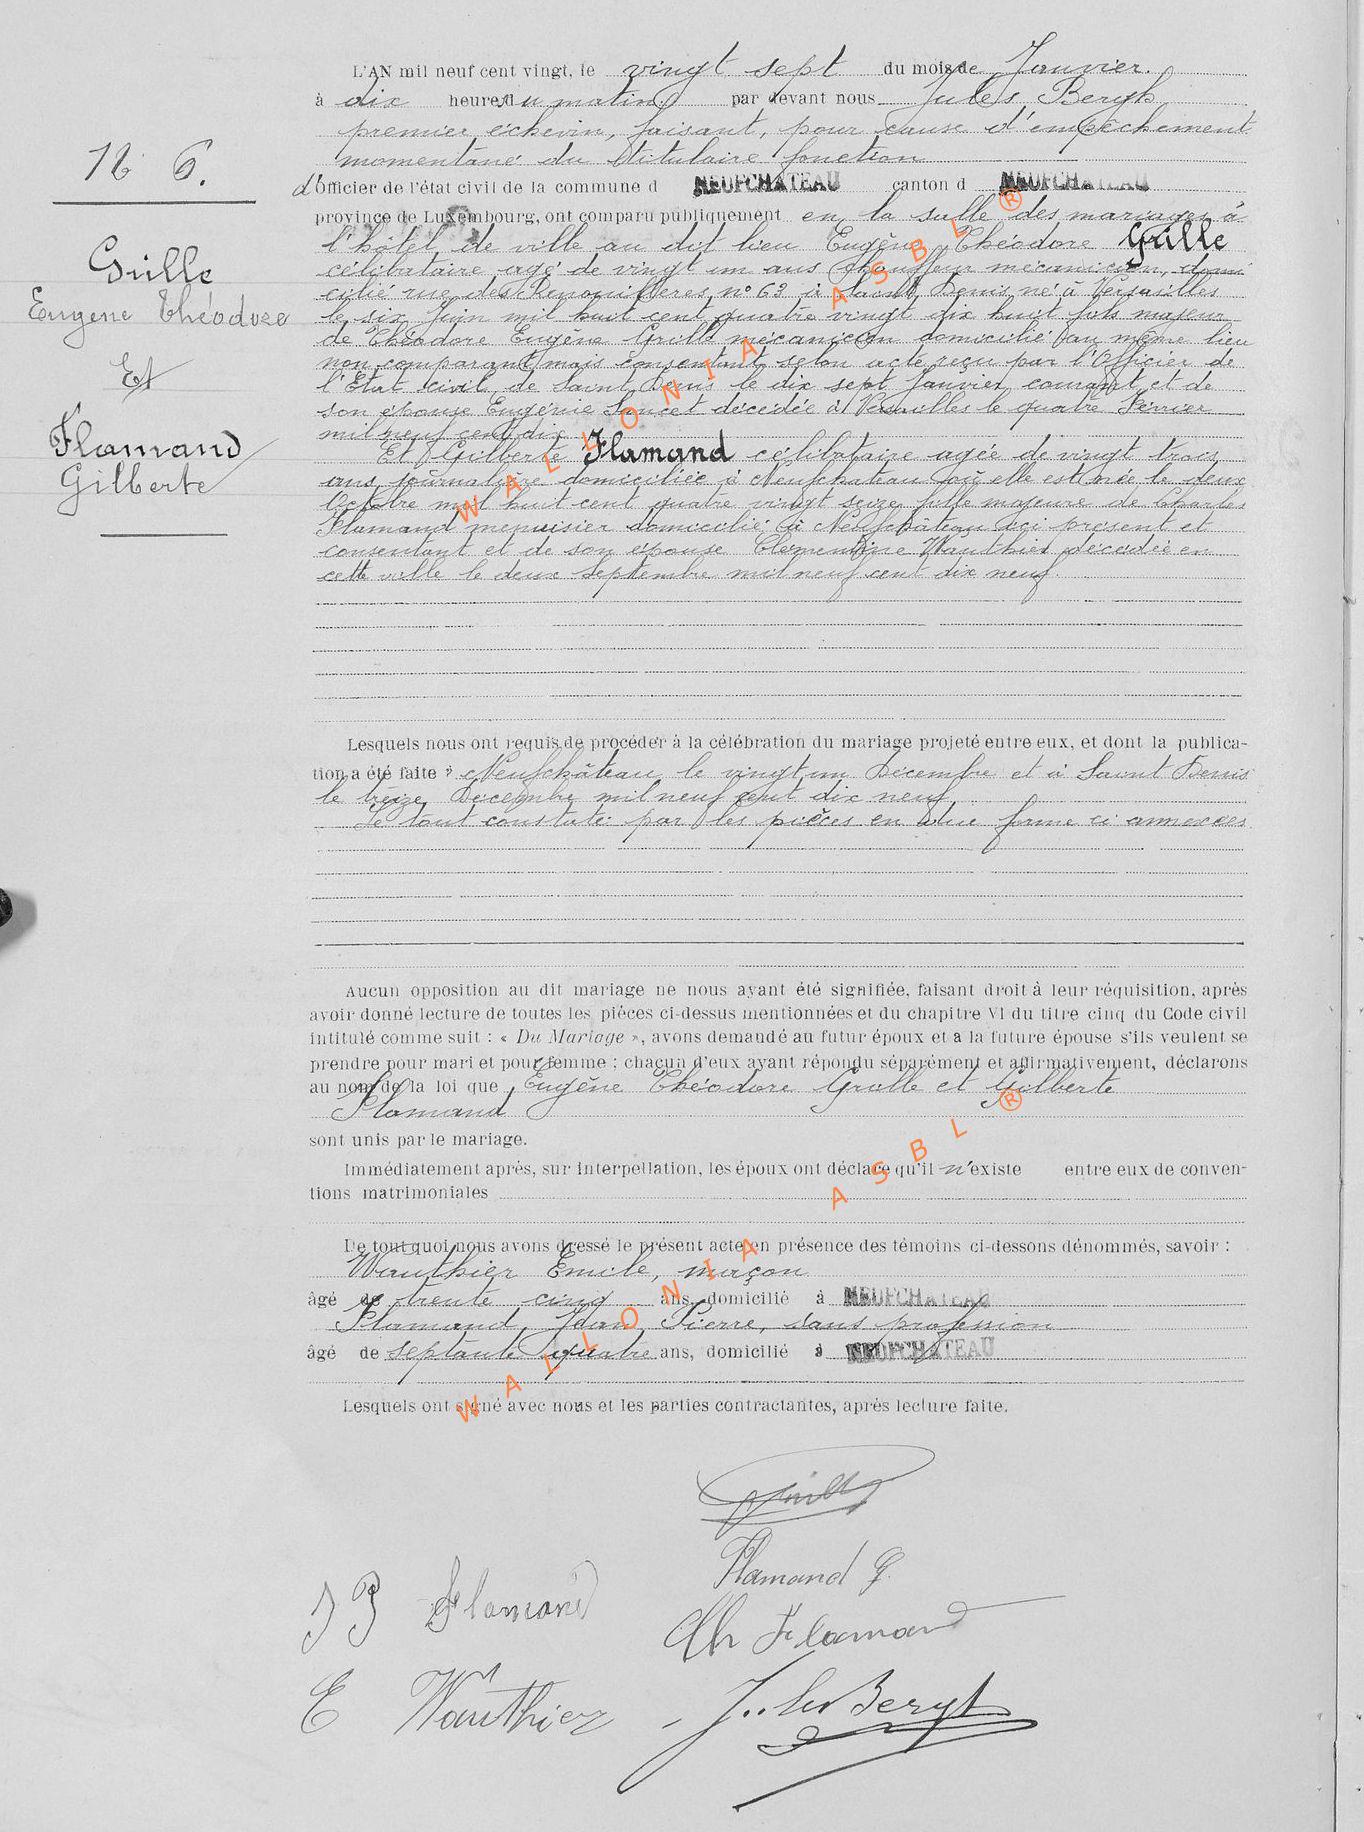 N° 6.
Grille
Eugène Théodore
Et
Flamand
Gilberte
L'AN mil neuf cent vingt, le vingt sept du mois de Janvier.
à dix heures du matin par devant nous Jules Bergh
premier échevin, faisant, pour cause d'empêchement
momentané du titulaire fonction
d'Officier de l'état civil de la commune d NEUFCHATEAU canton d NEUFCHATEAU
province de Luxembourg, ont comparu publiquement en la salle des mariages à
l'hôtel de ville au dit lieu Eugène Théodore Grille
célibataire agé de vingt un ans chauffeur mécanicien, domi
cilié rue des Renouillères n° 63 à Saint Denis né à Versailles
le six Juin mil huit cent quatre vingt dix huit fils majeur
de Théodore Eugène Grille mécanicien domicilié au même lieu
non comparant mais consentant selon acte reçu par l'Officier de
l'Etat Civil de Saint Denis le dix sept Janvier courant et de
son épouse Eugénie décédée à Versailles le quatre Février
mil neuf cent dix
Et Gilberte Flamand célibataire agée de vingt trois
ans, journalière domiciliée à Neufchateau où elle est née le deux
Octobre mil huit cent quatre vingt seize fille majeure de Charles
Flamand menuisier domicilié à Neufchâteau ici présent et
consentant et de son épouse Clementine Wauthier décédée en
cette ville le deux septembre mil neuf cent dix neuf.
Lesquels nous ont requis de procéder à la célébration du mariage projeté entre eux, et dont la publica-
tion a été faite à Neufchâteau le vingt un Décembre et à Saint Denis
le treize Décembre mil neuf cent dix neuf
Le tout constaté par les pièces en due forme ci annexées
Aucun opposition au dit mariage ne nous ayant été signifiée, faisant droit à leur réquisition, après
avoir donné lecture de toutes les pièces ci-dessus mentionnées et du chapitre VI du titre cinq du Code civil
intitulé comme suit : « Du Mariage », avons demandé au futur époux et a la future épouse s'ils veulent se
prendre pour mari et pour femme ; chacun d'eux ayant répondu séparément et affirmativement, déclarons
au nom de la loi que Eugène Théodore Grille et Gilberte
Flamand
sont unis par le mariage.
Immédiatement après, sur interpellation, les époux ont déclaré qu'il n'existe entre eux de conven-
tions matrimoniales
De tout quoi nous avons dressé le présent acte en présence des témoins ci-dessons dénommés, savoir :
Wauthier Emile, maçon
âgé de trente cinq ans, domicilié à NEUFCHATEAU
Flamand Jean Pierre, sans profession
âgé de septante quatre ans, domicilié à NEUFCHATEAU
Lesquels ont signé avec nous et les parties contractantes, après lecture faite.
Grille
Flamand G.
J P Flamand
Ch Flamand
E Wauthier
Jules Bergh
WALLONIA ASBL ®
WALLONIA ASBL ®